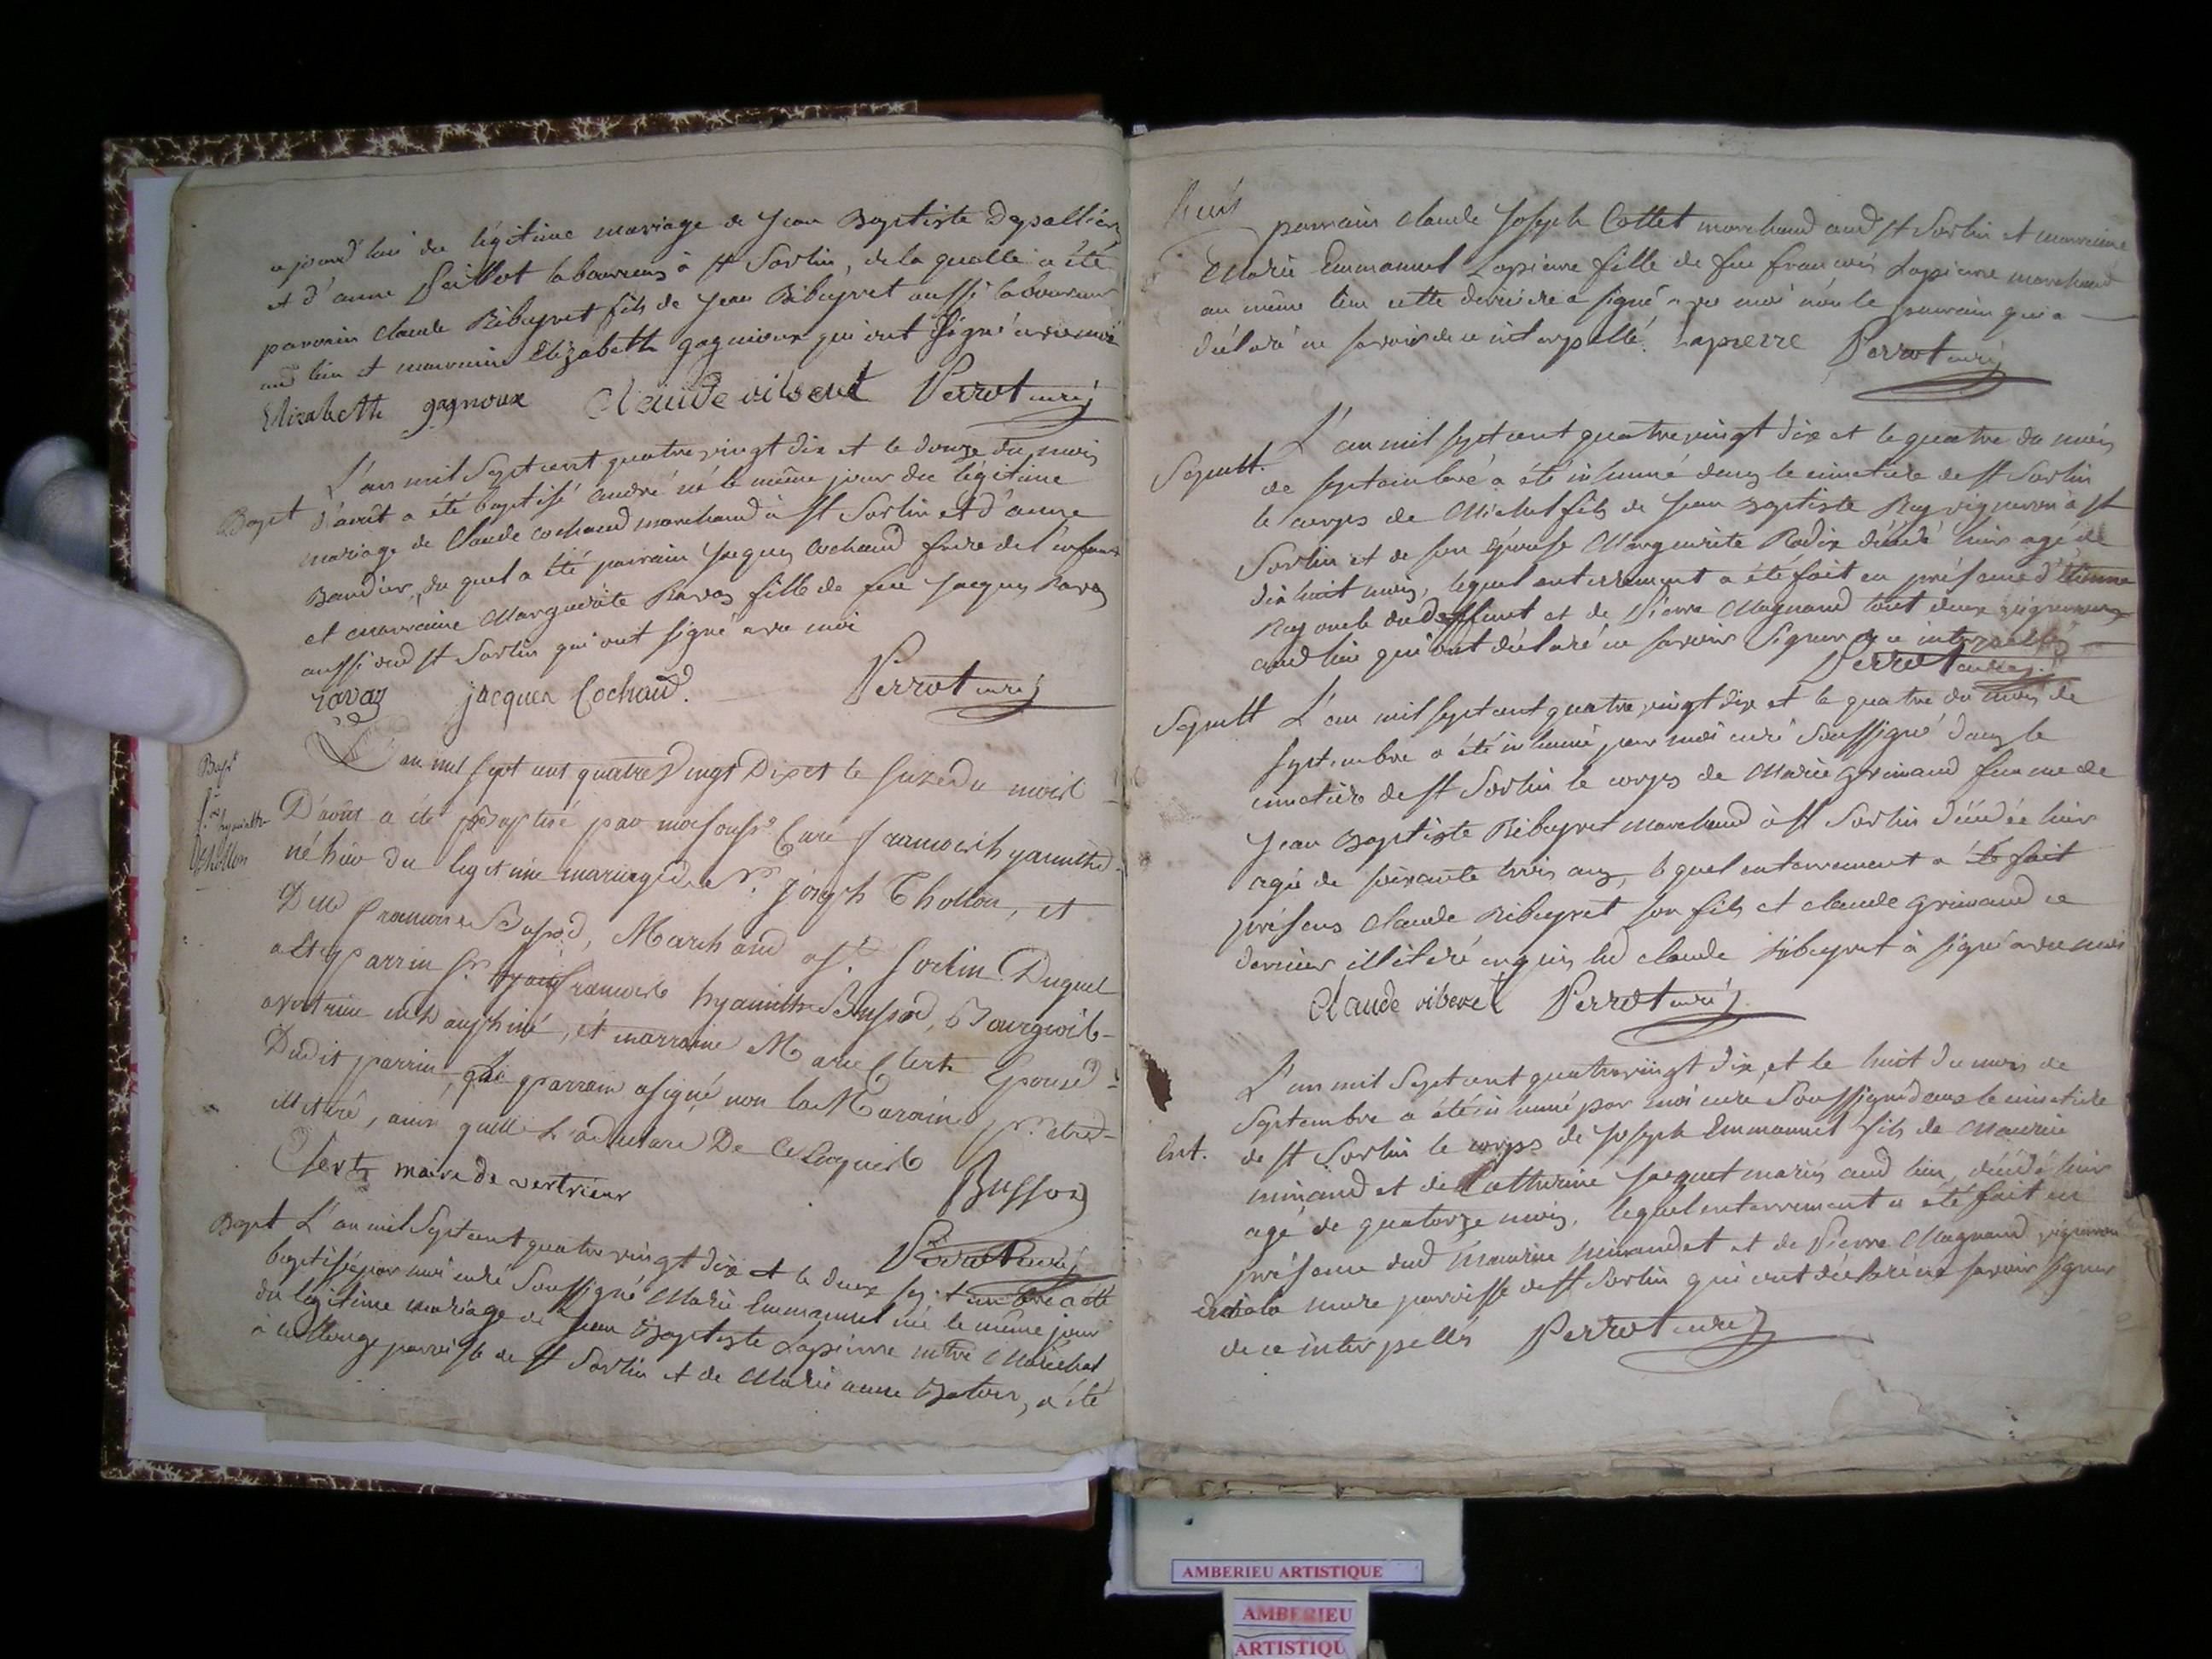 aujourd'hui du légitime mariage de Jean Baptiste
et d'anne Paillot laboureurs à St Sorlin, de laquelle a été
parrain claude Ribeyret fils de Jean Ribeyret aussi laboureur
aud lieu et marraine Elizabeth gagnioux qui ont signé avec moi
Elizabette gagnoux Claude riberet Perrot curé
L'an mil sept cent quatre vingt dix et le douze du mois
Bapt d'août a été baptisé andré né le même jour du légitime
mariage de Claude cochaud marchand à St Sorlin et d'anne
Baudier, du quel a été parrain Jacques cochaud frère de l'enfant
et marraine Marguerite Ravaz fille de feu Jacques Ravaz
aussi dud St Sorlin qui ont signé avec moi
ravaz jacques Cochaud. Perrot curé
Bapt
hyacinthe
Thollon
L'an mil sept cent quatre Vingt Dix et le seize du mois
D'août a été baptisé par moi souss.é Curé francois hyacinthe
né hier du legitime mariage de Sr. joseph Thollon, et
Dlle francoise Bussod, Marchand a St. Sorlin Duquel
a été parrin Sr. francois hyacinthe Bussod, Bourgeois
a vertrieu en dauphiné, et marraine Marie Clert Epouse
Dudit parrin, parrain a signé non la Maraine
illitéré, ainsi quelle L'a declaré De Ce Enquise
Clert maire de vertrieux Bussod
Perrot curé
Bapt L'an mil sept cent quatre vingt dix et le deux septembre a été
baptisée par moi curé soussigné Marie Emmanuel née le même jour
du légitime mariage de Jean Baptiste Lapierre maître Maréchal
à collonge parroisse de St Sorlin et de Marie anne, a été
parrain claude Joseph Collet marchand aud St Sorlin et marraine
Marie Emmanuel Lapierre fille de feu francois Lapierre marchand
au même lieu cette dernière a signé avec moi non le parrain qui a
déclaré ne savoir de ce interpellé. Lapierre Perrot curé
L'an mil sept cent quatre vingt dix et le quatre du mois
Sepult. de septembre a été inhumé dans le cimetière de St Sorlin
le corps de Michel fils de Jean Baptiste Ray vigneron à St
Sorlin et de son épouse Marguerite Rodix décédé hier agé de
dix huit mois, lequel enterrement a été fait en présence d'Etienne
Ray oncle du deffunt et de Pierre Magnand tout deux vignerons
aud lieu qui ont déclaré ne savoir signer de ce interpellés
Perrot curé
Sepult L'an mil sept cent quatre vingt dix et le quatre du mois de
septembre a été inhumé par moi curé soussigné dans le
cimetière de St Sorlin le corps de Marie grimaud femme de
Jean Baptiste Ribeyret marchand à St Sorlin décédée hier
agée de soixante trois ans, lequel enterrement a été fait
présens claude Ribeyret son fils et claude grimaud ce
dernier illitéré enquis led claude Ribeyret à signé avec moi
Claude riberet Perrot curé
L'an mil sept cent quatre vingt dix, et le huit du mois de
septembre a été inhumé par moi curé soussigné dans le cimetière
Ent. de St Sorlin le corps de Joseph Emmanuel fils de Maurice
minand et de Catherine Jacquet mariés aud lieu, décédé hier
agé de quatorze mois, lequel enterrement a été fait en
présence dud Maurice et de Pierre Magnand vigneron
de la même paroisse de St Sorlin qui ont déclaré ne savoir signer
de ce interpellés Perrot curé
AMBERIEU ARTISTIQUE
AMBERIEU
ARTISTIQU